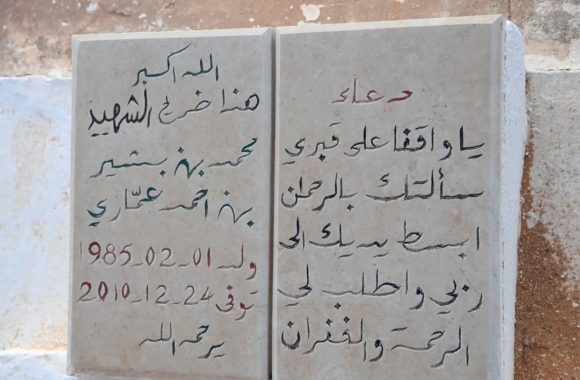 الله اكبر
هذا ضريح الشهيد
محمد بن بشير
بن احمد عمّاري
ولد 01_02_1985
توفى 24_12_2010
يرحمه الله
دعاء
يا واقفا على قبري
سألتك بالرحمان
ابسط يديك الى
ربي واطلب لي
الرحمة والغفران